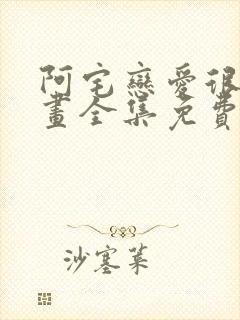 阿宅戀愛很
畫全集免費
沙塞菜